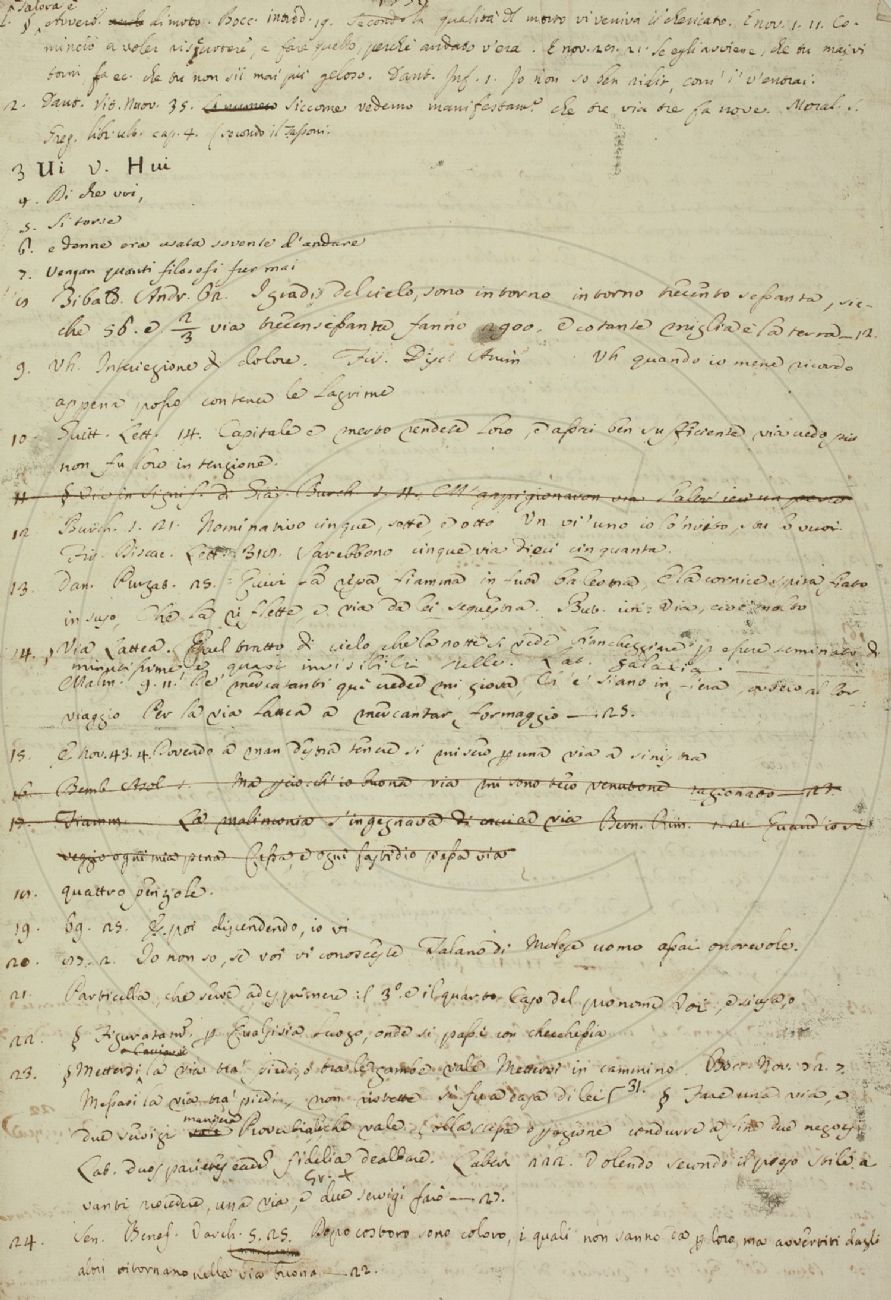 § Avverb. di moto. Bocc. introd. 19. Secondo la qualità del morto vi veniva il chericato. E nov. 1. 11. Co-
minciò a voler riscuotere, e fare quello, perchè andato v'era. E nov. se egli avviene, che tu mai vi
torni, fa ec. che tu non sii mai più geloso. Dant. Inf. 1. Io non so ben ridir, com' i' v'entrai.
2. Dant. Vit. Nuov. 35. siccome vedemo manifestam.e che tre via tre fa nove. Moral. S.
Greg. cap. 4. secondo il
3 Ui v. Hui
4. Di che voi,
5. Si torse
6. e donne era usata sovente d'andare
7. Vengan quanti filosofi fur mai
Andr. I gradi del cielo, sono intorno intorno trecento sessanta, sic-
che 56. e 2/3 via trecensessanta fanno e cotante miglia è la terra — 12.
9. Uh. Interiezione di dolore. Fir. Uh quando io mene ricordo
appena posso contener le lagrime
10. Guitt. Lett. 14. Capitale e merto rendere loro, e assai ben sufficiente, via vedo, più
non fu loro intenzione.
11. § Burch. 1. M'appigionaron via
12 Burch. 1. 21. Nominativo cinque, sette, e otto Un vi' uno io l'ho vinto, vuoi
Fir. Lett. 318. Sarebbono cinque via dieci cinquanta.
13. Dan. Purgat. 25. Quivi la ripa fiamma in fuor balestra, E la cornice spira fiato
in suso, Che la riflette, e via da lei sequestra. But. ivi: Via, cioè molto
14. Via Lattea. Quel tratto di cielo, che la notte si vede biancheggiare p. essere seminato di
minutissime, e quasi invisibili stelle. Lat. galaxia.
Malm. 9. 11. De' mercatanti qui creder mi giova, Ch' e' siano in fiera, ovvero al lor
viaggio Per la via lattea a mercantar formaggio — 25.
15. E nov. 43. 4. Dovendo a man destra tenere si misero p. una via a sinistra
16. Bemb. Asol. 1. Ma perciocch' io buona via mi sono teco venutone ragionando — 27.
17. Fiamm. La malinconia s'ingegnava di cacciar via Bern. Rim. 1. Quand io ve-
veggio ogni mia pena Cessa, e ogni fastidio passa via
18. quattro pentole.
19. 69. 25. E poi discendendo, io vi
20. 2. Io non so, se voi vi conosceste Talano di Molese uomo assai onorevole.
21. Particella, che serve ad esprimere il 3.o e il quarto Caso del pronome Voi, e si usa, o
22. § Figuratam.e p. Qualsisia luogo, onde si passi con checchessia
23. § Mettersi la via tra' piedi, o tra le gambe vale Mettersi in cammino. Bocc. Nov. 72. 7.
Messasi la via tra' piedi, non ristette si fu a casa di lei 31. § Fare una via, e
due servigi maniera Proverbiale, che vale colla stessa operazione condurre a fine due negozj
Lat. Duos parietes eadem fidelia dealbare. Gr. + Dolendo secondo il pregio stile a
vanti procedere, una via, e due servigi farò — 27.
24. Sen. Benef. Varch. 5. 25. Dopo costoro sono coloro, i quali non sanno da p. loro, ma avvertiti dagli
altri ritornano nella via buona — 22.